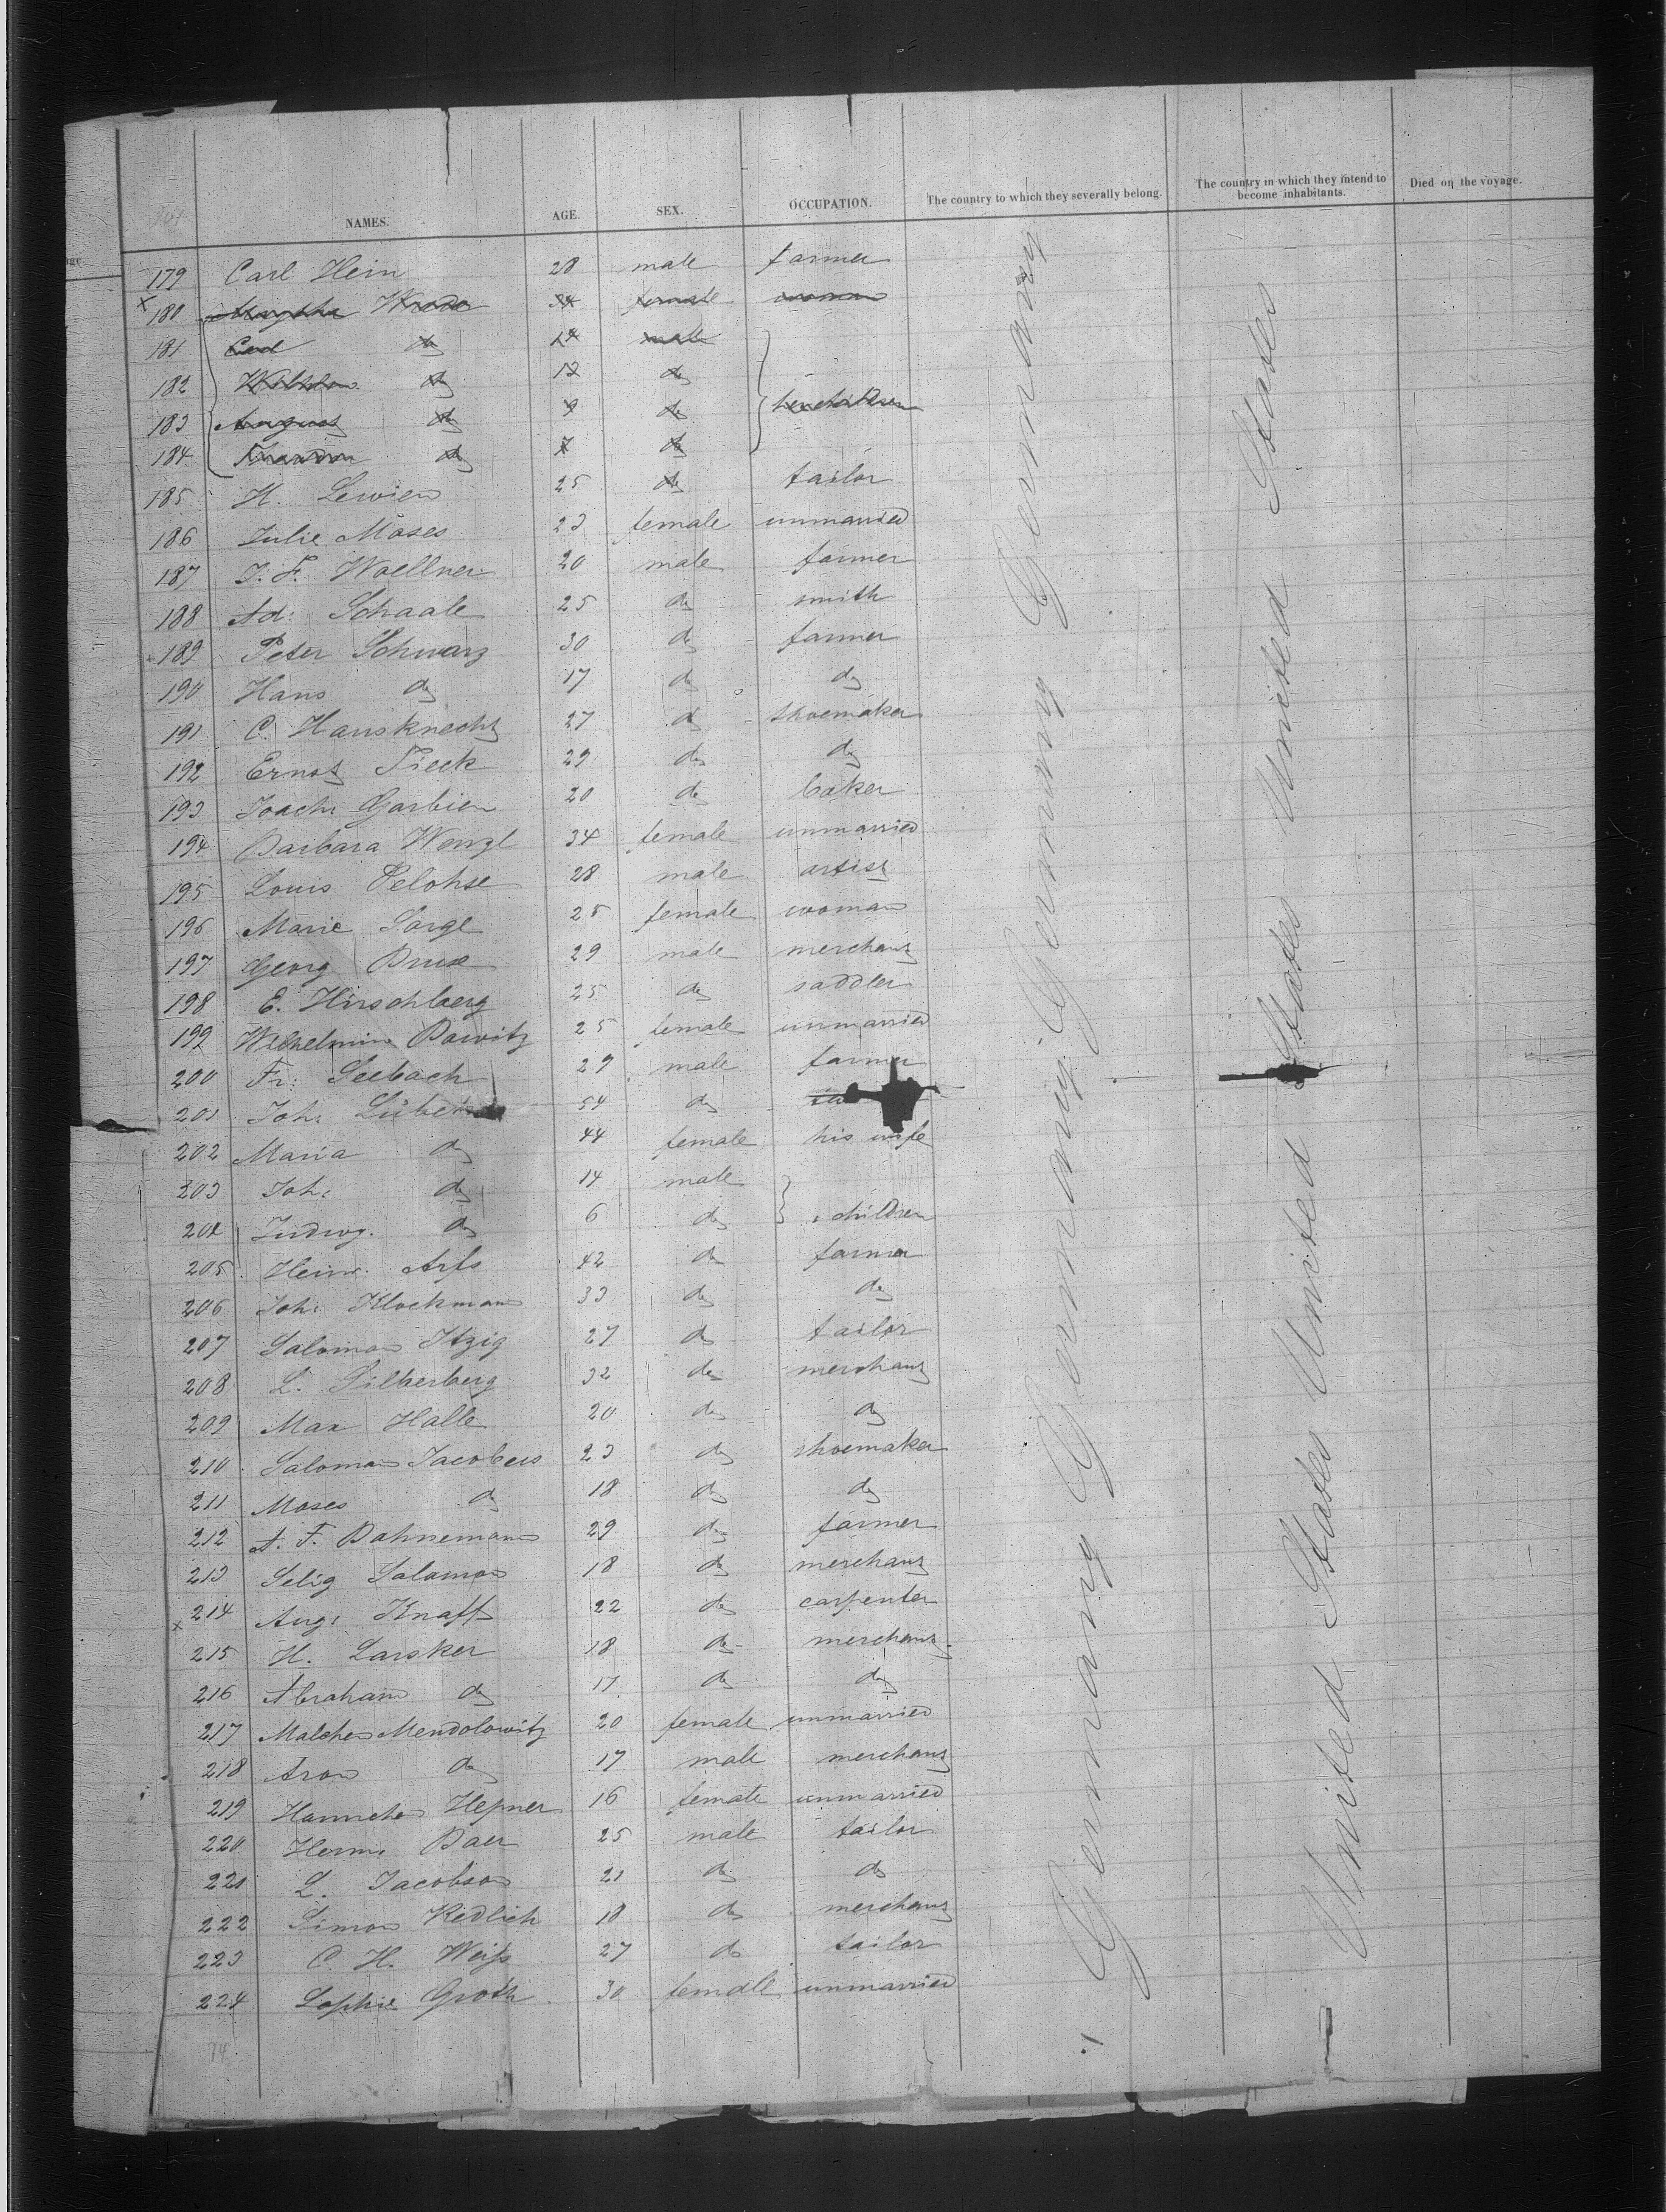 NAMES. AGE. SEX. OCCUPATION. The country to which they severally belong. The country in which they intend to become inhabitants. Died on the voyage.
179 Carl Hein 28 male farmer
180 Wrede 34 female woman
181 Carl do 14 male
182 do 12 do
183 August do 9 do her children
184 do 7 do
185 H. Lewien 25 do tailor
186 Julie Moses 23 female unmarried
187 J. F. Woellner 20 male farmer
188 Ad: Schaale 25 do smith
189 Peter Schwarz 30 do farmer
190 Hans do 17 do do
191 C. Hausknecht 27 do shoemaker
192 Ernst Fieck 29 do do
193 Joach: Garbien 20 do baker
194 Barbara Wenzl 34 female unmarried
195 Louis Pelohse 28 male artist
196 Marie Sorge 25 female woman
197 Georg Brux 29 male merchant
198 E. Hirschberg 25 do saddler
199 Wilhelmine Bawitz 25 female unmarried
200 Fr: Seebach 29 male farmer
201 Joh: 54 do
202 Maria do 44 female his wife
203 Joh: do 14 male
204 Ludwg. do 6 do children
205 Heinr. Arfs 42 do farmer
206 Joh: Klockmann 33 do do
207 Salomon Itzig 27 do tailor
208 L. Silberberg 32 do merchant
209 Max Halle 20 do do
210 Salomon Jacobus 23 do shoemaker
211 Moses do 18 do do
212 A. F. Bahnemann 29 do farmer
213 Selig Salomon 18 do merchant
214 Aug: Knaff 22 do carpenter
215 H. Larsker 18 do merchant
216 Abraham do 17 do do
217 Malchen Mendolowitz 20 female unmarried
218 Aron do 17 male merchant
219 Hannchen Hepner 16 female unmarried
220 Herm: Baer 25 male tailor
221 L. Jacobson 21 do do
222 Simon Redlich 18 do merchant
223 C. H. Weiss 27 do tailor
224 Sophie Groth 30 female unmarried
Germany Germany Germany Germany Germany
United States United States United States